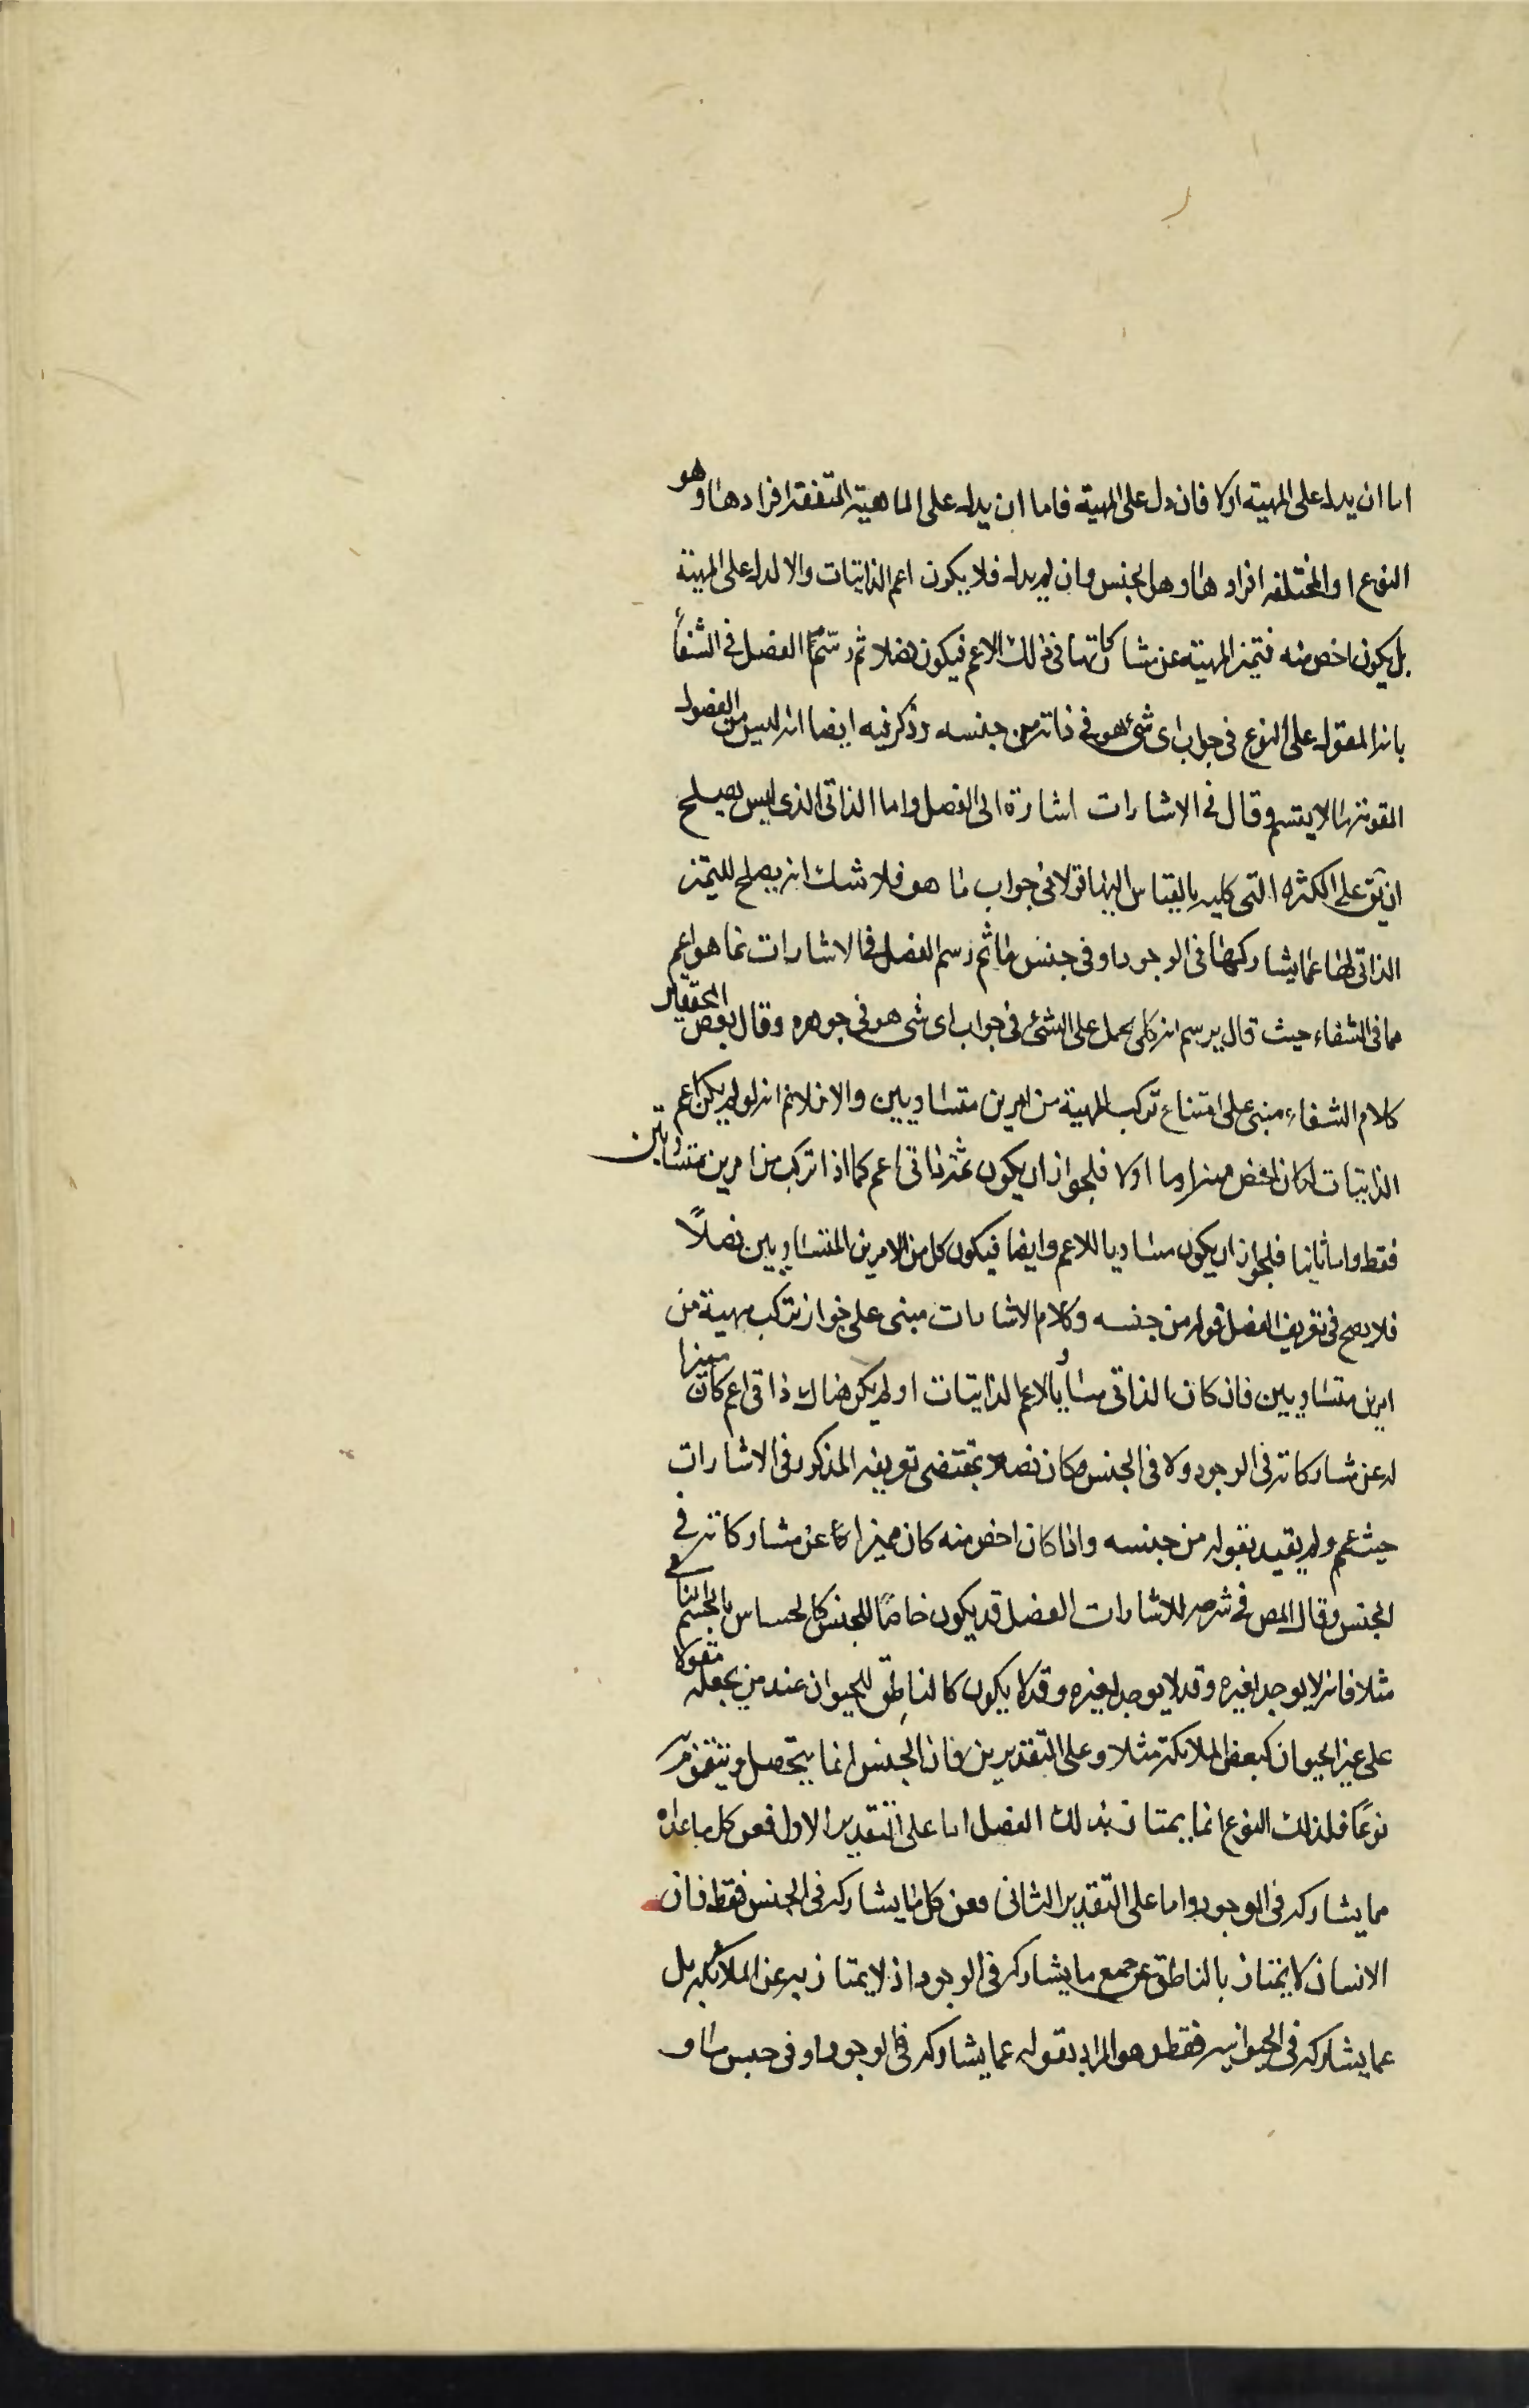 اما ان يدل على المهية اولا فان دل على المهية فاما ان يدل على الماهية المتفقة افرادها وهو
النوع او المختلفه افرادها وهو الجنس وان لم يدل فلا يكون اعم الذاتيات والا لدل على المهية
بل يكون اخص منه فتميز المهية عن مشاركاتها فى ذلك الاعم فيكون فصلا ثم رسم الفصل فى الشفأ
بانه المقول على النوع فى جواب اى شئ هو فى ذاته من جنسه وذكر فيه ايضا انه ليس من الفصول
المقومة ما لا يقسم وقال فى الاشارات اشارة الى الفصل واما الذاتى الذى ليس يصلح
ان يق على الكثره التى كليه بالقياس اليها قولا فى جواب ما هو فلا شك انه يصلح للتميز
الذاتى لها عما يشاركها فى الوجود او فى جنس ما ثم رسم الفصل فى الاشارات بما هو اعم
مما فى الشفاء حيث قال يرسم انه كلى يحمل على الشئ فى جواب اى شى هو فى جوهره وقال بعض المحققين
كلام الشفاء مبنى على امتناع تركب المهية من امرين متساويين والا فلا نم انه لو لم يكن اعم
الذاتيات لكان اخص منه اما اولا فلجواز ان يكون ثمة ذاتى اعم كما اذا تركب من امرين متساويين
فقط واما ثانيا فلجواز ان يكون مساويا للاعم وايضا فيكون كل من الامرين المتساويين فصلاً
فلا يصح فى تعريف الفصل قوله من جنسه وكلام الاشارات مبنى على جواز تركب مهية من
امرين متساويين فان كان الذاتى مساويا لاعم الذاتيات او لم يكن هناك ذاتى اعم كان مميزا
له عن مشاركاته فى الوجود ولا فى الجنس وكان فصلا بمقتضى تعريفه المذكور فى الاشارات
حيث عم ولم يقيد بقوله من جنسه واذا كان اخص منه كان مميزا لها عن مشاركاته فى
الجنس وقال المص فى شرحه للاشارات الفصل قد يكون خاصًا للجنس كالحساس بالجسم النامى
مثلا فانه لا يوجد لغيره وقد لا يوجد لغيره وقد لا يكون كالناطق للحيوان عند من يجعله مقولا
على غير الحيوان كبعض الملائكة مثلا وعلى التقديرين فان الجنس انما يتحصل ويتقوم به
نوعًا فلذلك النوع انما يمتاز بذلك الفصل اما على التقدير الاول فعن كل ما عداه
مما يشاركه فى الوجود واما على التقدير الثانى فعن كل ما يشاركه فى الجنس فقط فان
الانسان لا يمتاز بالناطق عن جميع ما يشاركه فى الوجود اذ لا يمتاز به عن الملائكه بل
عما يشاركه فى الحيوانيه فقط وهو المراد بقوله عما يشاركه فى الوجود او فى جنس ما و